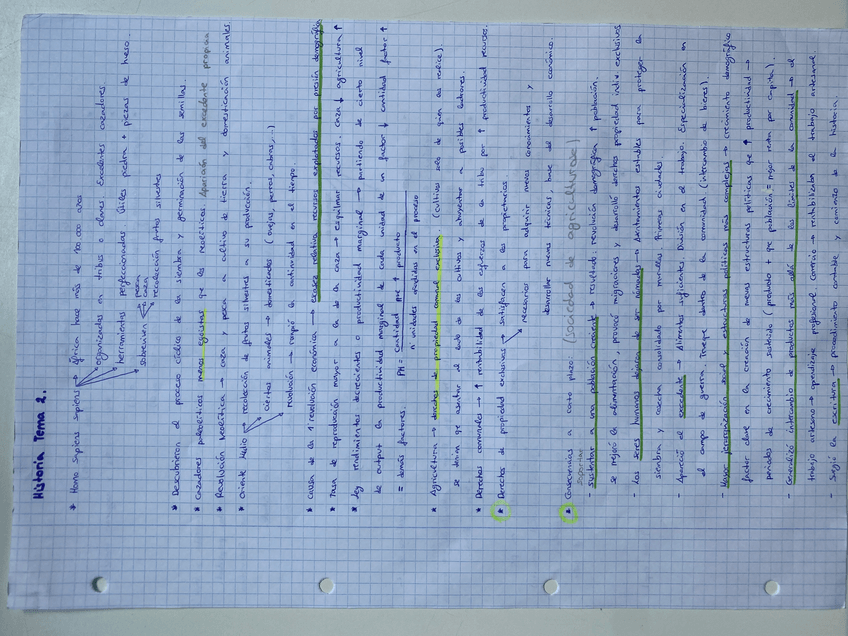 Historia Tema 2.
* Homo Sapiens Sapiens → África hace más de 90.000 años
organizados en tribus o clanes. Excelentes cazadores.
herramientas perfeccionadas. Útiles piedra + piezas de hueso.
subsistían pesca
caza
recolección frutos silvestres
* Descubrieron el proceso cíclico de la siembra y germinación de las semillas.
* Cazadores paleolíticos menos egoístas que los neolíticos. Aparición del excedente propian
* Revolución Neolítica → caza y pesca a cultivo de tierra y domesticación animales.
* Oriente Medio → recolección de frutos silvestres a su producción.
ciertos animales → domesticados (ovejas, perros, cabras,...)
revolución → rompió la continuidad en el tiempo.
* Causa de la 1ª revolución económica → escasez relativa recursos explotados por presión demográfica
* Tasa de reproducción mayor a la de la caza → esquilmar recursos. caza ↓ agricultura ↑
* Ley rendimientos decrecientes o productividad marginal → partiendo de cierto nivel
de output la productividad marginal de cada unidad de un factor ↓ cantidad factor ↑
= demás factores. PM = cantidad producto
nº unidades añadidas en el proceso
* Agricultura → derechos de propiedad comunal exclusiva. (cultivos solo de quien los realice).
se tenían que asentar al lado de los cultivos y ahuyentar a posibles ladrones.
* Derechos comunales → ↑ rentabilidad de los esfuerzos de la tribu por ↑ productividad recursos.
* Derechos de propiedad exclusivos → satisfacen a los propietarios
necesarios para adquirir menos conocimientos y
desarrollar nuevas técnicas, base del desarrollo económico.
* Consecuencias a corto plazo: (sociedad de agricultores)
soportar
- sustentar a una población creciente → resultado revolución demográfica ↑ población.
se mejoró la alimentación, provocó migraciones y desarrolló derechos propiedad indiv. exclusivos
- Los seres humanos dejaron de ser nómadas → Asentamientos estables para proteger la
siembra y cosecha consolidado por murallas. Primeras ciudades
- Apareció el excedente → Alimentos suficientes. División en el trabajo. Especialización en
el campo de guerra. Trueque dentro de la comunidad (intercambio de bienes).
- Mayor jerarquización social y estructuras políticas más complejas → crecimiento demográfico
factor clave en la creación de nuevas estructuras políticas que ↑ productividad →
periodos de crecimiento sostenido (producto + que población = mayor renta per cápita).
- Generalizó intercambio de productos más allá de los límites de la comunidad → el
trabajo artesano → aprendizaje profesional. Comercio → rentabilizador el trabajo artesanal.
- Surgió la escritura → procedimiento contable y comienzo de la historia.